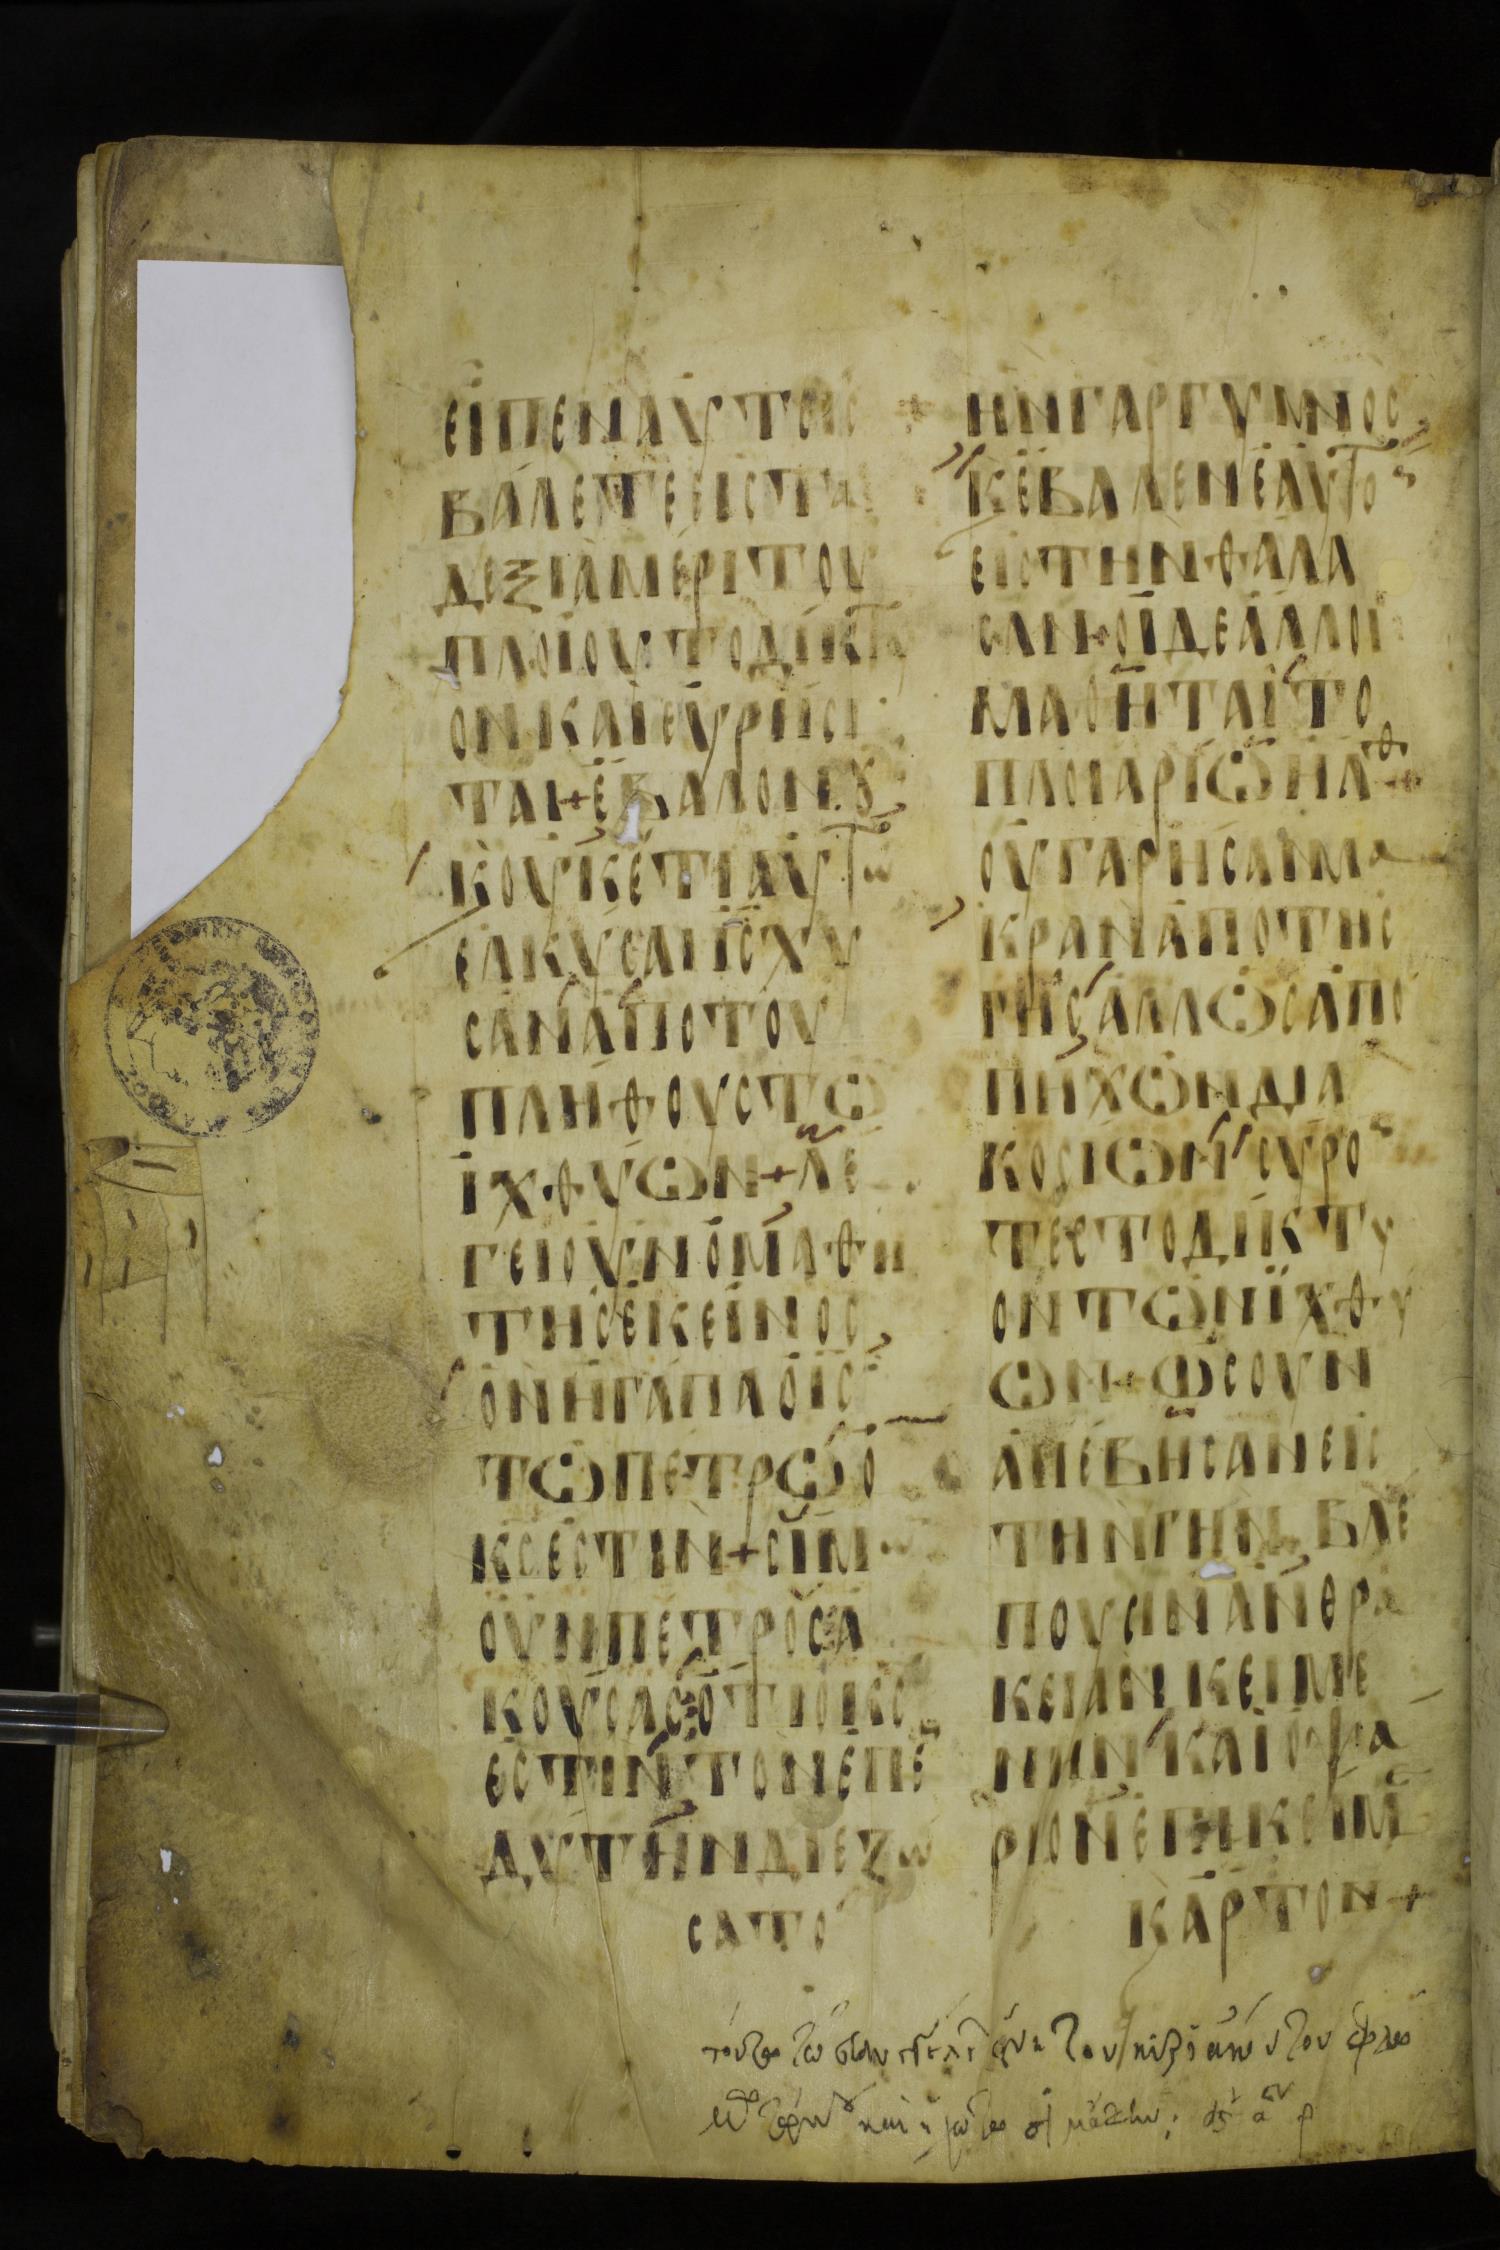 ΕΙΠΕΝΑΥΤΟΙΣ
ΒΑΛΕΤΕΕΙΣΤΑ
ΔΕΞΙΑΜΕΡΙΤΟΥ
ΠΛΟΙΟΥΤΟΔΙΚΤΥ
ΟΝΚΑΙΕΥΡΗΣΙ
ΤΑΙ+ΕΒΑΛΟΝΟΥ
ΚΟΥΚΕΤΙΑΥΤΟ
ΕΛΚΥΣΑΙΙΣΧΥ
ΣΑΝΑΠΟΤΟΥ
ΠΛΗΘΟΥΣΤΩ
ΙΧΘΥΩΝ+ΛΕ
ΓΕΙΟΥΝΟΜΑΘΗ
ΤΗΣΕΚΕΙΝΟΣ
ΟΝΗΓΑΠΑΟΙΣ
ΤΩΠΕΤΡΩΟ
ΚΣΕΣΤΙΝ+ΣΙΜΩ
ΟΥΝΠΕΤΡΟΣΑ
ΚΟΥΣΑΣΟΤΙΟΚΣ
ΕΣΤΙΝΤΟΝΕΠΕ
ΔΥΤΗΝΔΙΕΖΩ
ΣΑΤΟ
ΗΝΓΑΡΓΥΜΝΟΣ
ΚΕΒΑΛΕΝΕΑΥΤΟ
ΕΙΣΤΗΝΘΑΛΑ
ΣΑΝ+ΟΙΔΕΑΛΛΟΙ
ΜΑΘΗΤΑΙΤΟ
ΠΛΟΙΑΡΙΩΗΛΘ+
ΟΥΓΑΡΗΣΑΝΜΑ
ΚΡΑΝΑΠΟΤΗΣ
ΓΗΣΑΛΛΩΣΑΠΟ
ΠΗΧΩΝΔΙΑ
ΚΟΣΙΩΝΣΥΡΟ
ΤΕΣΤΟΔΙΚΤΥ
ΟΝΤΩΝΙΧΘΥ
ΩΝ+ΩΣΟΥΝ
ΑΠΕΒΗΣΑΝΕΙΣ
ΤΗΝΓΗΝΒΛΕ
ΠΟΥΣΙΝΑΝΘΡΑ
ΚΕΙΑΝΚΕΙΜΕ
ΝΗΝΚΑΙΟΨΑ
ΡΙΟΝΕΠΗΚΕΙΜΕ
ΚΑΡΤΟΝ+